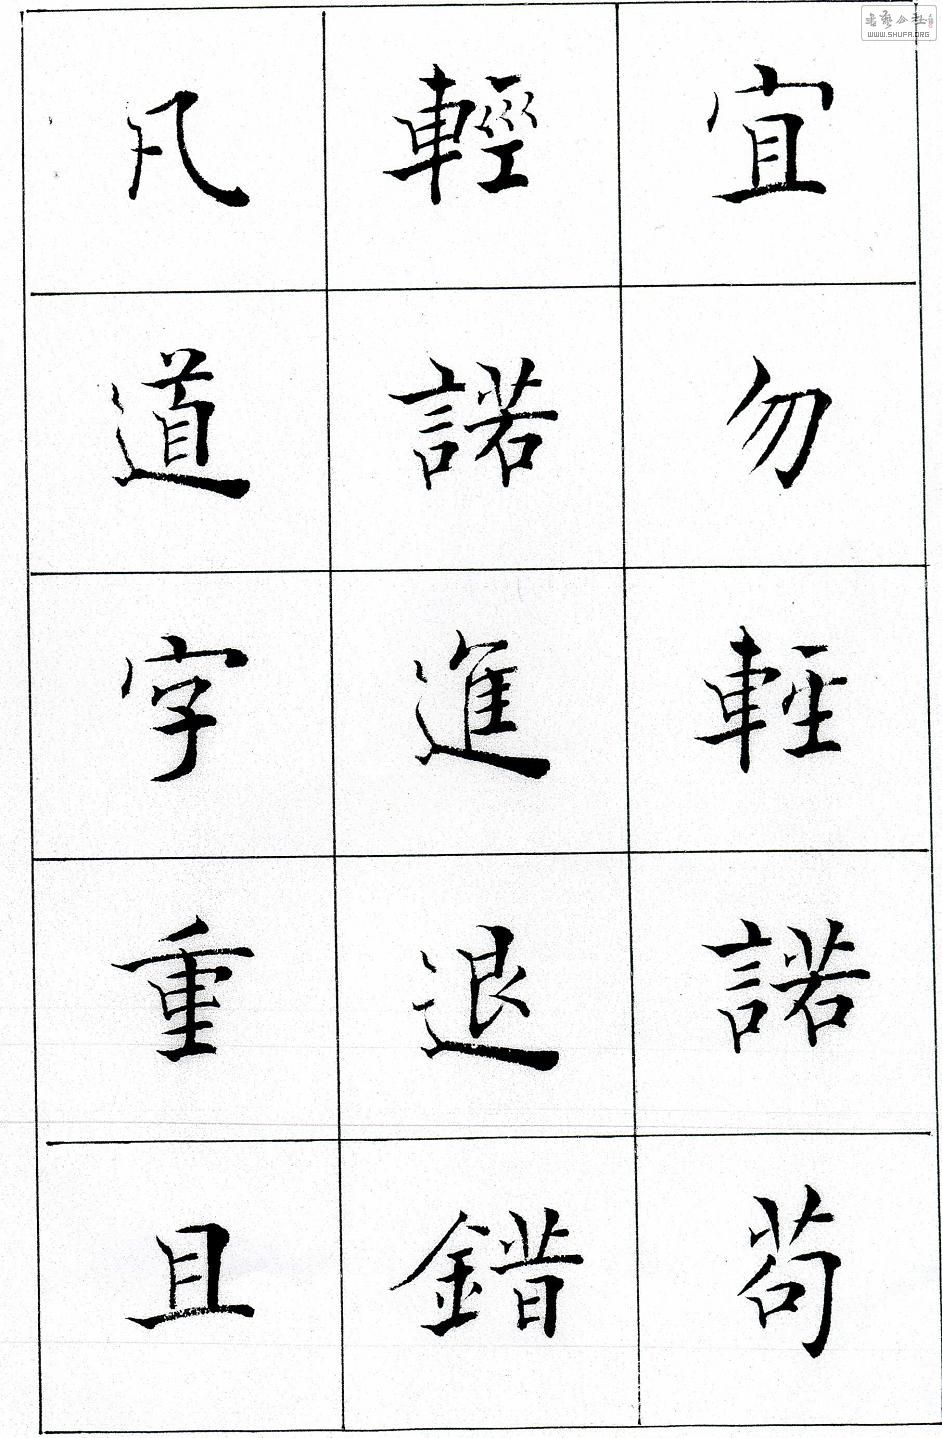 宜勿輕諾苟
輕諾進退錯
凡道字重且
WWW.SHUFA.ORG